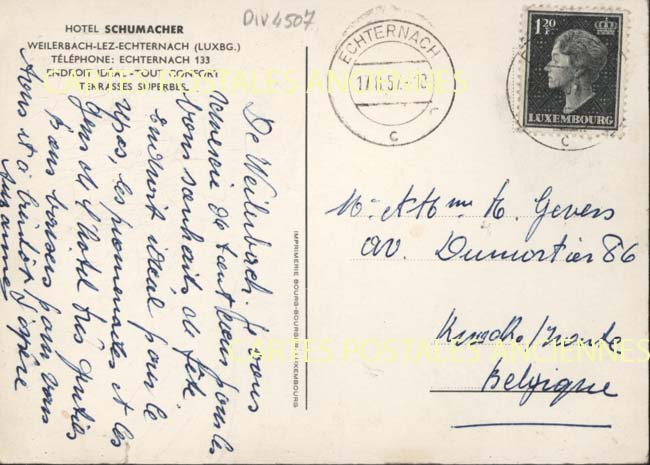 DIV4507
HOTEL SCHUMACHER
WEILERBACH-LEZ-ECHTERNACH (LUXBG.)
TÉLÉPHONE: ECHTERNACH 133
ENDROIT IDÉAL - TOUT CONFORT
TERRASSES SUPERBES
De Weilerbach, je vous
remercie de tout cœur pour les
bons souhaits de fête
Endroit idéal pour le
repos, les promenades et les
gens de l'hotel très gentils
Bons baisers pour vous
tous et à bientôt j'espère
Suzanne
IMPRIMERIE BOURG-BOURGER LUXEMBOURG
ECHTERNACH
C
1.20
F
LUXEMBOURG
C
Mr A Mme A. Gevers
av. Dumortier 86
Belgique
CARTES POSTALES ANCIENNES
CARTES POSTALES ANCIENNES